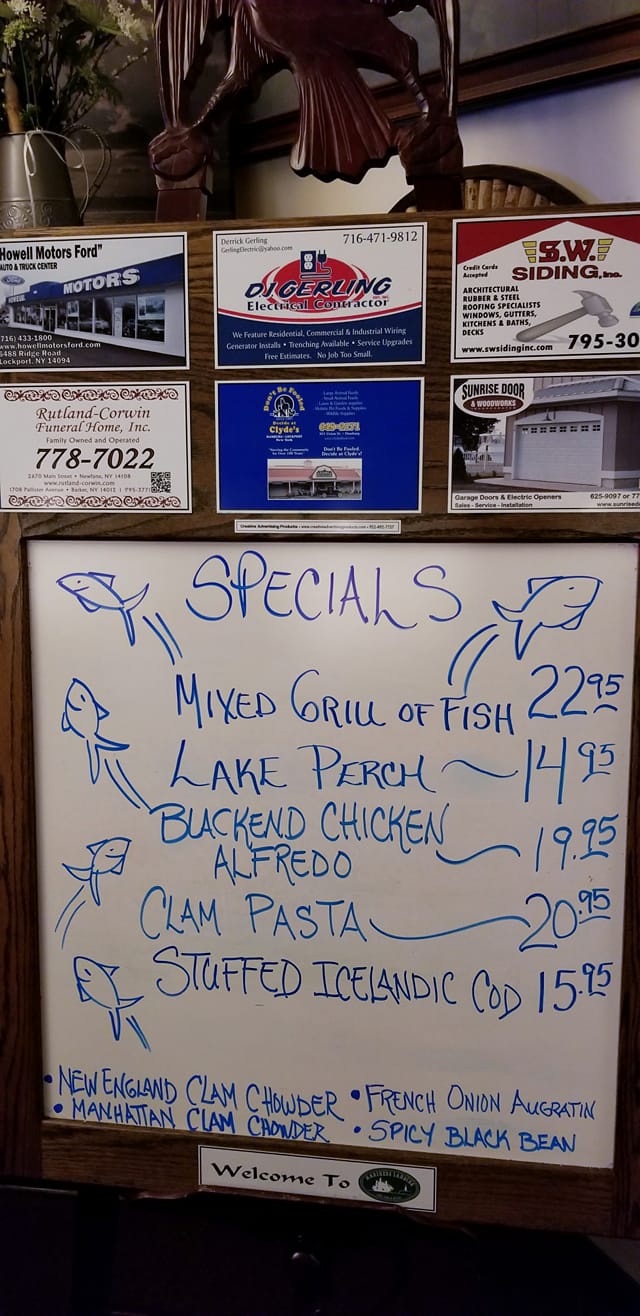 Howell Motors Ford"
AUTO & TRUCK CENTER
Ford
HOWELL MOTORS
(716) 433-1800
www.howellmotorsford.com
6488 Ridge Road
Lockport, NY 14094
Derrick Gerling
GerlingElectric@yahoo.com
716-471-9812
DJ GERLING
Electrical Contractor
We Feature Residential, Commercial & Industrial Wiring
Generator Installs • Trenching Available • Service Upgrades
Free Estimates. No Job Too Small.
S.W.
SIDING, Inc.
Credit Cards
Accepted
ARCHITECTURAL
RUBBER & STEEL
ROOFING SPECIALISTS
WINDOWS, GUTTERS,
KITCHENS & BATHS,
DECKS
www.swsidinginc.com 795-30
Rutland-Corwin
Funeral Home, Inc.
Family Owned and Operated
778-7022
2670 Main Street • Newfane, NY 14108
www.rutland-corwin.com
1708 Pallister Avenue • Barker, NY 14012 | 795-3771
Don't Be Fooled
Decide at
Clyde's
Large Animal Feeds
Small Animal Feeds
Lawn & Garden supplies
Holistic Pet Foods & Supplies
Wildlife Supplies
Don't Be Fooled,
Decide at Clyde's!
SUNRISE DOOR
& WOODWORKS
Garage Doors & Electric Openers
Sales - Service - Installation
625-9097 or 77
www.sunrised
Creative Advertising Products
SPECIALS
MIXED GRILL OF FISH 22.95
LAKE PERCH ~ 14.95
BLACKEND CHICKEN
ALFREDO 19.95
CLAM PASTA 20.95
STUFFED ICELANDIC COD 15.95
• NEW ENGLAND CLAM CHOWDER • FRENCH ONION AUGRATIN
• MANHATTAN CLAM CHOWDER • SPICY BLACK BEAN
Welcome To